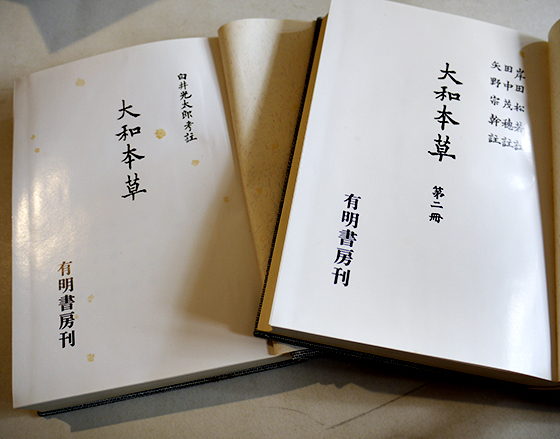 白井光太郎考註
大和本草
有明書房刊
岸田松若註
田中茂穂註
矢野宗幹註
大和本草
第二冊
有明書房刊